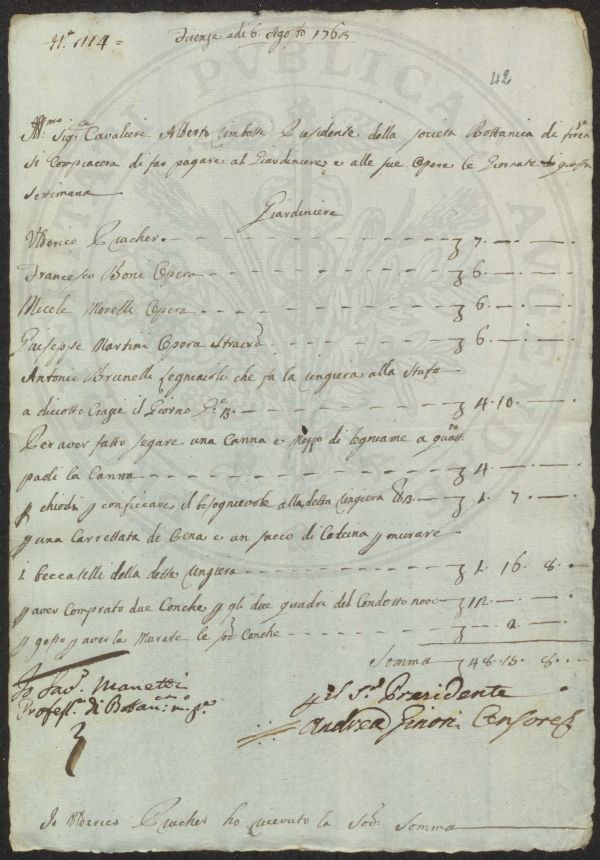 N.° 114 =
Firenze adi 6. Agosto 1763
42
Ill:mo Sig:re Cavaliere Alberto Rimbotti Presidente della società Bottanica di Firenze
Si Compiacera di far pagare al Giardiniere e alle sue Opere le Giornate di questa
settimana
Giardiniere
Ulderico Prucher ₰ 7. — —
Francesco Boni Opera ₰ 6. — —
Micele Morelli Opera ₰ 6. — —
Guiseppe Martini Opera Straord. ₰ 6. — —
Antonio Brunelli Legniaiolo che fa la Ungiera alla Stufa
a diciotto Crazie il Giorno G.e ₰ 4. 10. —
Per aver fatto segare una Canna e Mezzo di legniame a quatt.ro
paoli la Canna ₰ 4 — —
p chiodi p conficcare il bisognievole alla detta Ungiera ₰ 1. 7 —
p una Carrettata di Rena e un sacco di Calcina p murare
i beccatelli della detta Ungiera ₰ 1. 16. 8. —
p aver Comprato due Conche p gli due quadri del Condotto novo ₰ 12. — —
p gesso p aver le Murate le sod. Conche ₰ — 2. —
Somma ₰ 48. 15. 8.
Io Sav. Manetti
Profess.e di Bottan:
p il S.r Presidente
Andrea Ginori Censore
Io Ulderico Prucher ho ricevuto la Sod. Somma